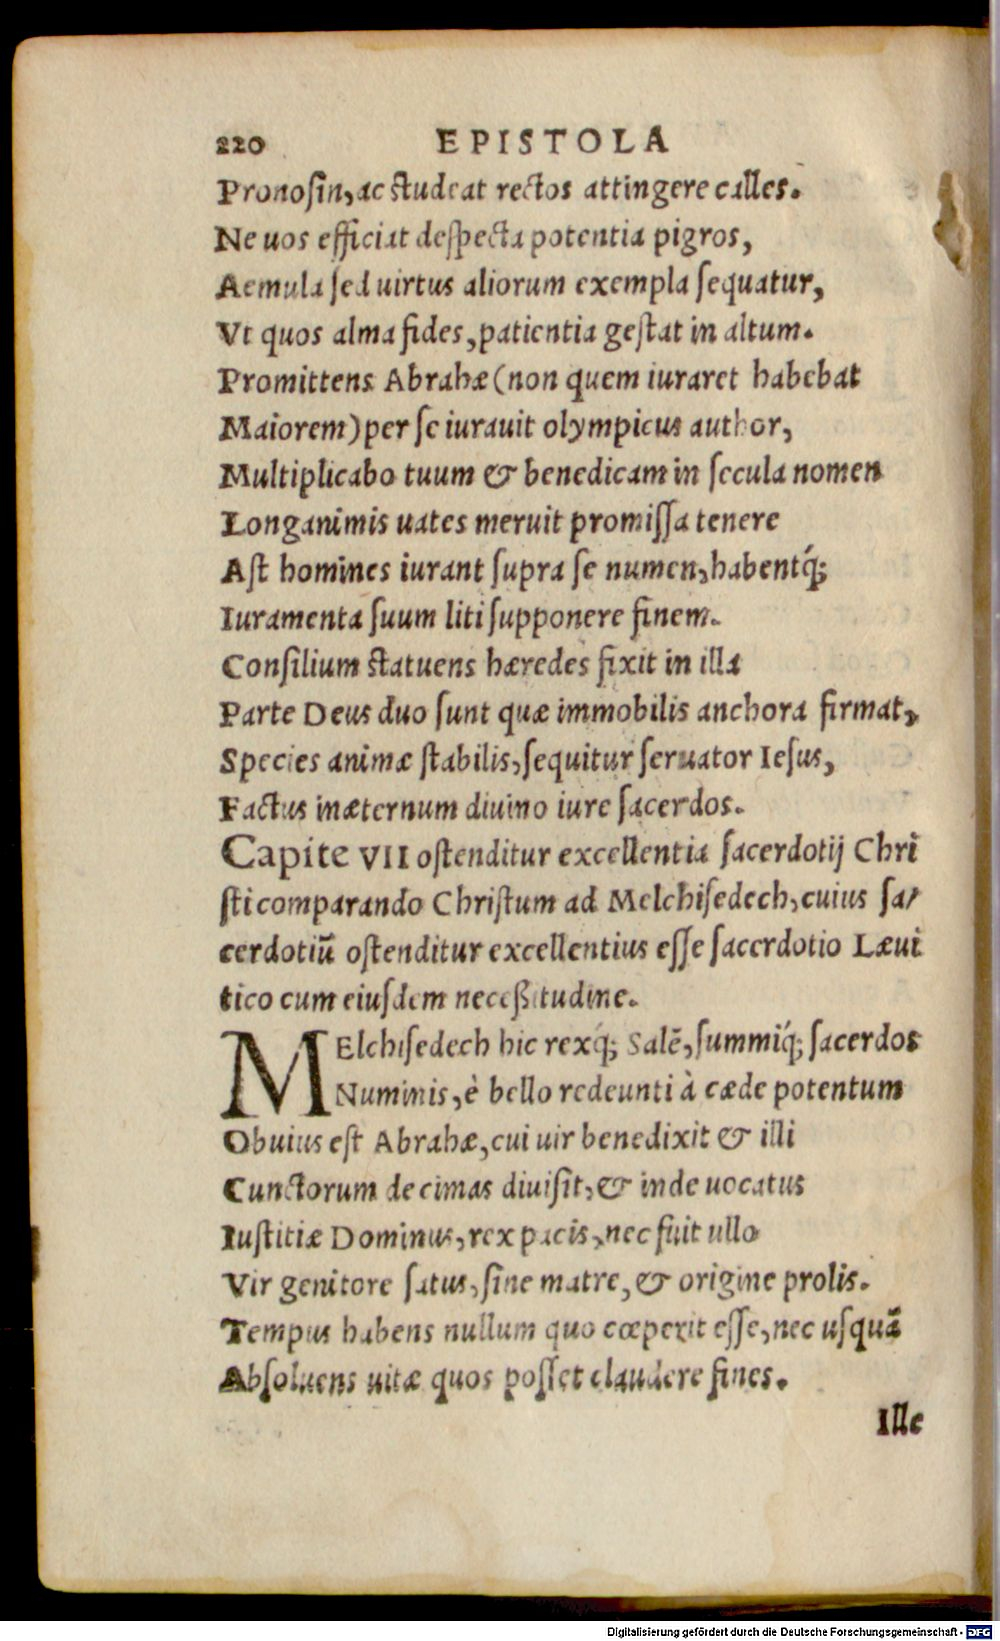 220 EPISTOLA
Pronosin, ac studeat rectos attingere calles.
Ne uos efficiat despecta potentia pigros,
Aemula sed uirtus aliorum exempla sequatur,
Vt quos alma fides, patientia gestat in altum.
Promittens Abrahæ (non quem iuraret habebat
Maiorem) per se iurauit olympicus author,
Multiplicabo tuum & benedicam in secula nomen
Longanimis uates meruit promissa tenere
Ast homines iurant supra se numen, habentq́;
Iuramenta suum liti supponere finem.
Consilium statuens hæredes fixit in illa
Parte Deus duo sunt quæ immobilis anchora firmat,
Species animæ stabilis, sequitur seruator Iesus,
Factus inæternum diuino iure sacerdos.
Capite VII ostenditur excellentia sacerdotij Chri
sti comparando Christum ad Melchisedech, cuius sa-
cerdotiū ostenditur excellentius esse sacerdotio Læui
tico cum eiusdem necessitudine.
MElchisedech hic rexq́; Salē, summiq́; sacerdos
Numinis, è bello redeunti à cæde potentum
Obuius est Abrahæ, cui uir benedixit & illi
Cunctorum decimas diuisit, & inde uocatus
Iustitiæ Dominus, rex pacis, nec fuit ullo
Vir genitore satus, sine matre, & origine prolis.
Tempus habens nullum quo cœperit esse, nec usquā
Absoluens uitæ quos posset claudere fines.
Ille
Digitalisierung gefördert durch die Deutsche Forschungsgemeinschaft - DFG